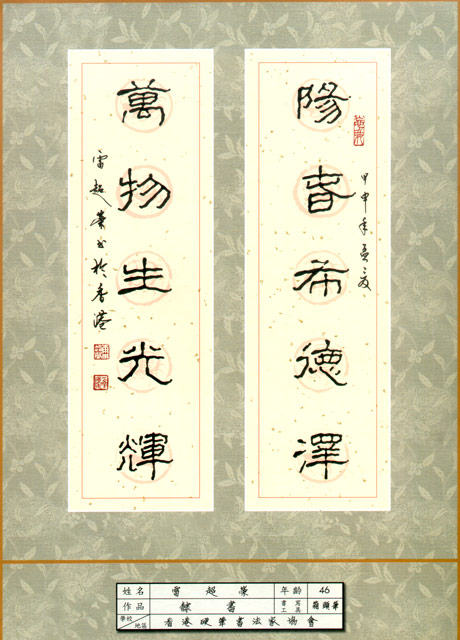 陽春希德澤
甲申年孟夏
萬物生光輝
雷超榮書於香港
姓名 雷超榮 年齡 46
作品 隸書 書寫工具 箱頭筆
學校/地區 香港硬筆書法家協會